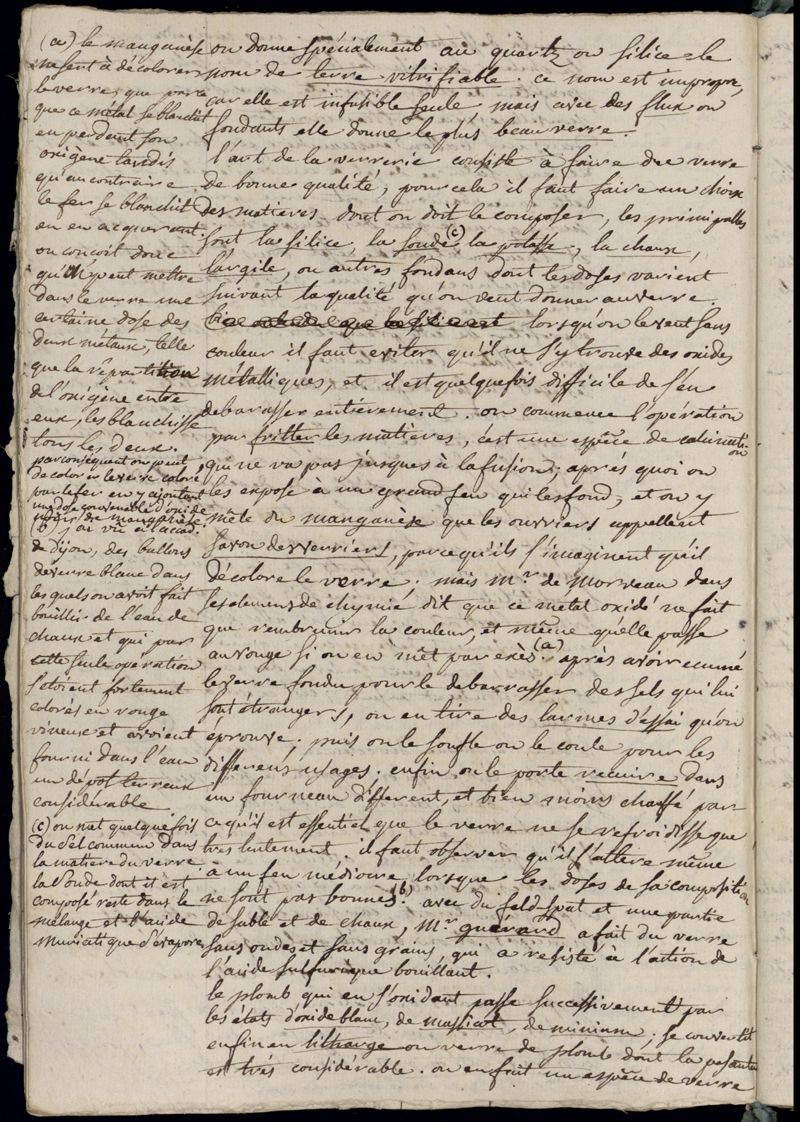 on donne spécialement au quartz ou silice le
nom de terre vitrifiable. ce nom est impropre,
car elle est infusible seule, mais avec des flux ou
fondants elle donne le plus beau verre.
l'art de la verrerie consiste à faire du verre
de bonne qualité; pour cela il faut faire un choix
des matieres dont on doit le composer, les principalles
sont la silice, la soude (c), la potasse, la chaux,
l'argile, ou autres fondans dont les doses varient
suivant la qualité qu'on veut donner au verre.
lorsqu'on le veut sans
couleur il faut eviter qu'il ne s'y trouve des oxides
métalliques, et il est quelquefois difficile de s'en
debarasser entièrement. on commence l'opération
par fritter les matières, c'est une espèce de calcinati-
on
qui ne va pas jusques à la fusion; après quoi on
les expose à un grand feu qui les fond, et on y
mêle du manganèse que les ouvriers appellent
savon des verriers, parce qu'ils s'imaginent qu'il
décolore le verre; mais Mr. de Morveau dans
ses elemens de chymie dit que ce metal oxidé ne fait
que rembrunir la couleur, et même qu'elle passe
au rouge si on en met par excès. (a) après avoir ecumé
le verre fondu pour le debarrasser des sels qui lui
sont étrangers, on en tire des larmes d'essai qu'on
eprouve. puis on le souffle ou le coule pour les
differens usages. enfin on le porte recuire dans
un fourneau différent, et bien moins chauffé par
ce qu'il est essentiel que le verre ne se refroidisse que
très lentement. il faut observer qu'il s'altère même
à un feu médiocre lorsque les doses de sa composition
ne sont pas bonnes. (b) avec du feld-spat et une partie
de sable et de chaux, Mr. guérard a fait du verre
sans ondes et sans grains, qui a résisté à l'action de
l'acide sulfurique bouillant.
le plomb qui en s'oxidant passe successivement par
les états d'oxide blanc, de massicot, de minium, se convertit
enfin en litharge ou verre de plomb dont la pesanteur
est très considérable. on en fait une espèce de verre
(a) le manganèse
ne sert à décolorer
le verre, que parce
que ce métal se blanchit
en perdant son
oxigène tandis
qu'au contraire
le fer se blanchit
en en acquerant.
on conçoit donc
qu'il peut mettre
dans le verre une
certaine dose des
deux métaux, telle
que la répartition
de l'oxigène entre
eux, les blanchisse
tous les deux.
par conséquent on peut
décolorer le verre coloré
par le fer en y ajoutant
une dose convenable d'oxide
noir de manganèse.
(b) j'ai vu à l'acad.
de dijon, des ballons
de verre blanc dans
lesquels on avoit fait
bouillir de l'eau de
chaux et qui par
cette seule opération
s'etoient fortement
colorés en rouge
vineux et avoient
fourni dans l'eau
un dépôt terreux
considérable
(c) on met quelquefois
du sel commun dans
la matière du verre
la soude dont il est
composé reste dans le
mélange et l'acide
muriatique s'évapore